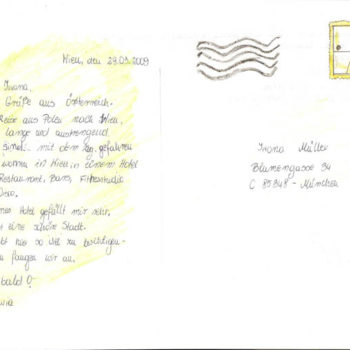 Wien, den 28.03.2009
Iwona,
Grüße aus Österreich.
Reise aus Polen nach Wien,
lange und anstrengend
sind mit dem Zug gefahren
wohnen in Wien in einem Hotel
Restaurant, Bars, Fitnessstudio
Disco.
Hotel gefällt mir sehr,
eine schöne Stadt.
so viel zu besichtigen
fangen wir an.
bald!
Iwona Müller
Blumengasse 34
C 85345 - München